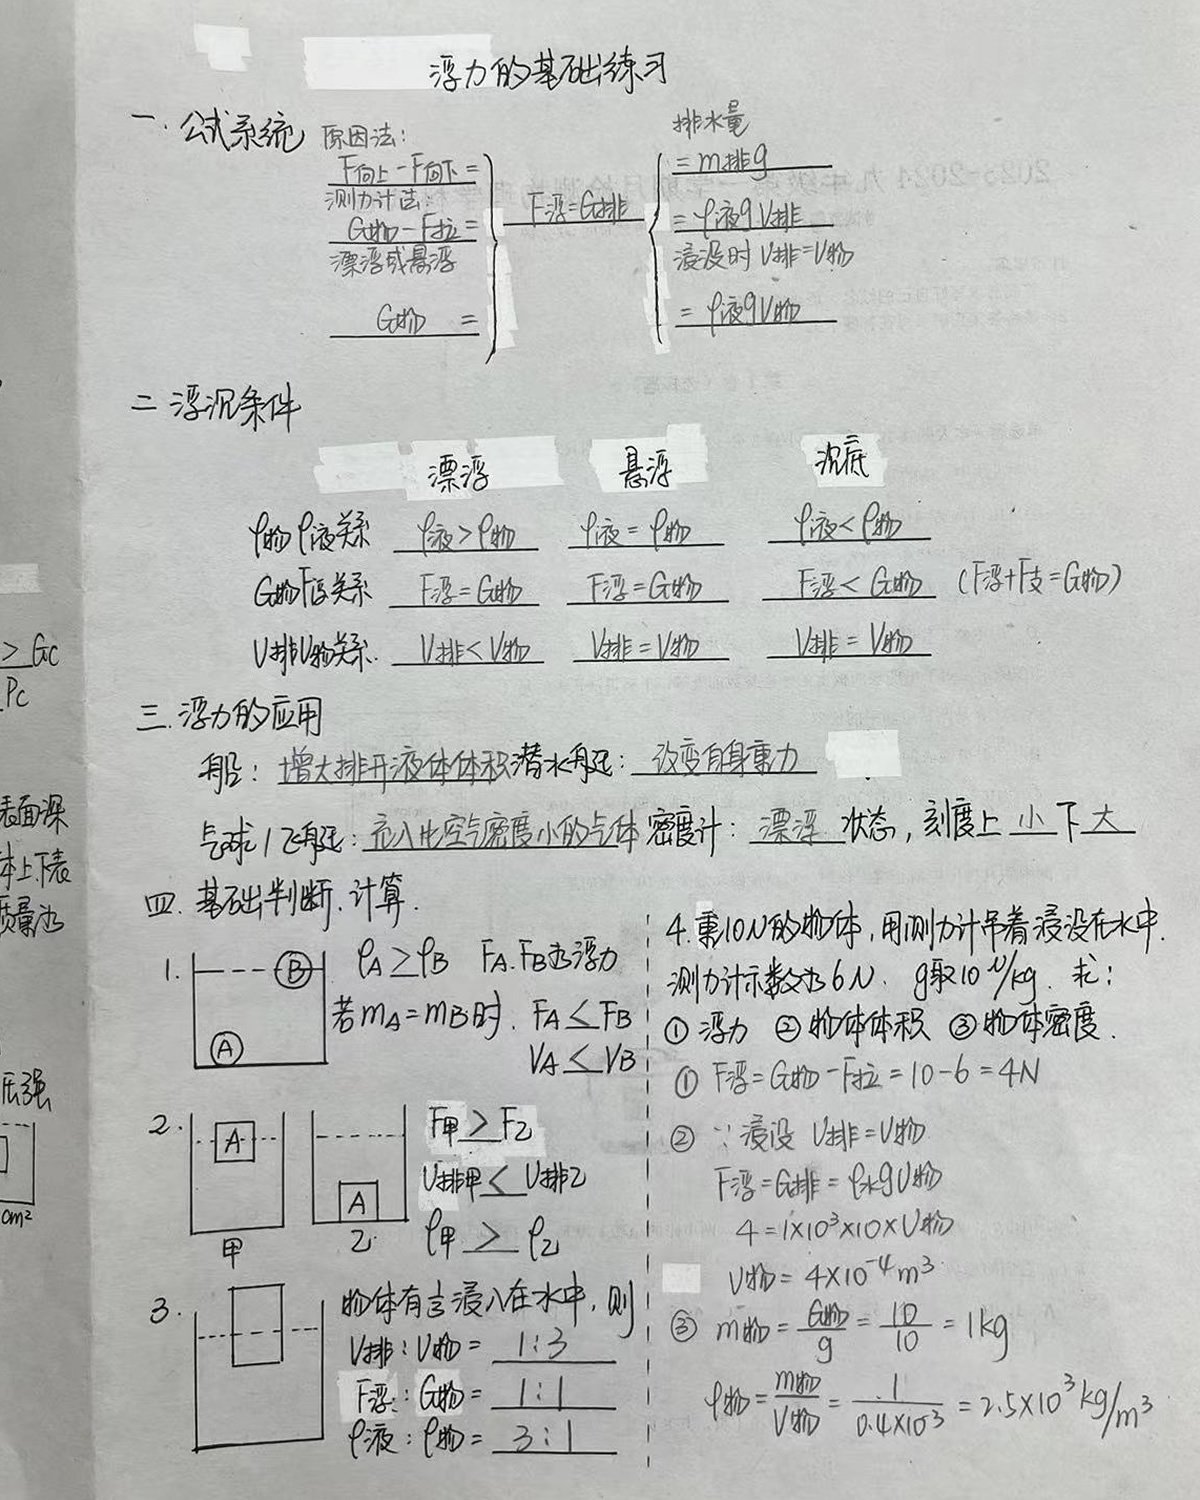 浮力的基础练习
一.公式系统
原因法:
F向上-F向下=
测力计法:
G物-F拉=
漂浮或悬浮
G物 =
F浮=G排
排水量
=m排g
=ρ液gV排
浸没时V排=V物
=ρ液gV物
二 浮沉条件
漂浮 悬浮 沉底
ρ物ρ液关系 ρ液>ρ物 ρ液=ρ物 ρ液<ρ物
G物F浮关系 F浮=G物 F浮=G物 F浮<G物 (F浮+F支=G物)
V排V物关系. V排<V物 V排=V物 V排=V物
三.浮力的应用
船: 增大排开液体体积 潜水艇: 改变自身重力
气球/飞艇: 充入比空气密度小的气体 密度计: 漂浮 状态, 刻度上 小 下 大
四.基础判断.计算.
1. B A ρA>ρB FA.FB为浮力
若mA=mB时. FA<FB
VA<VB
2. A 甲 A 乙
F甲>F乙
V排甲<V排乙
ρ甲>ρ乙
3. 物体有浸入在水中,则
V排:V物= 1:3
F浮:G物= 1:1
ρ液:ρ物= 3:1
4.重10N的物体,用测力计吊着浸没在水中.
测力计示数为6N. g取10N/kg. 求:
①浮力 ②物体体积 ③物体密度.
① F浮=G物-F拉=10-6=4N
② ∵浸没 V排=V物
F浮=G排=ρ水gV物
4=1×10³×10×V物
V物=4×10⁻⁴m³
③ m物=G物/g=10/10=1kg
ρ物=m物/V物=1/0.4×10³=2.5×10³kg/m³
>GC
PC
表面深
体上下表
质量为
压强
cm²